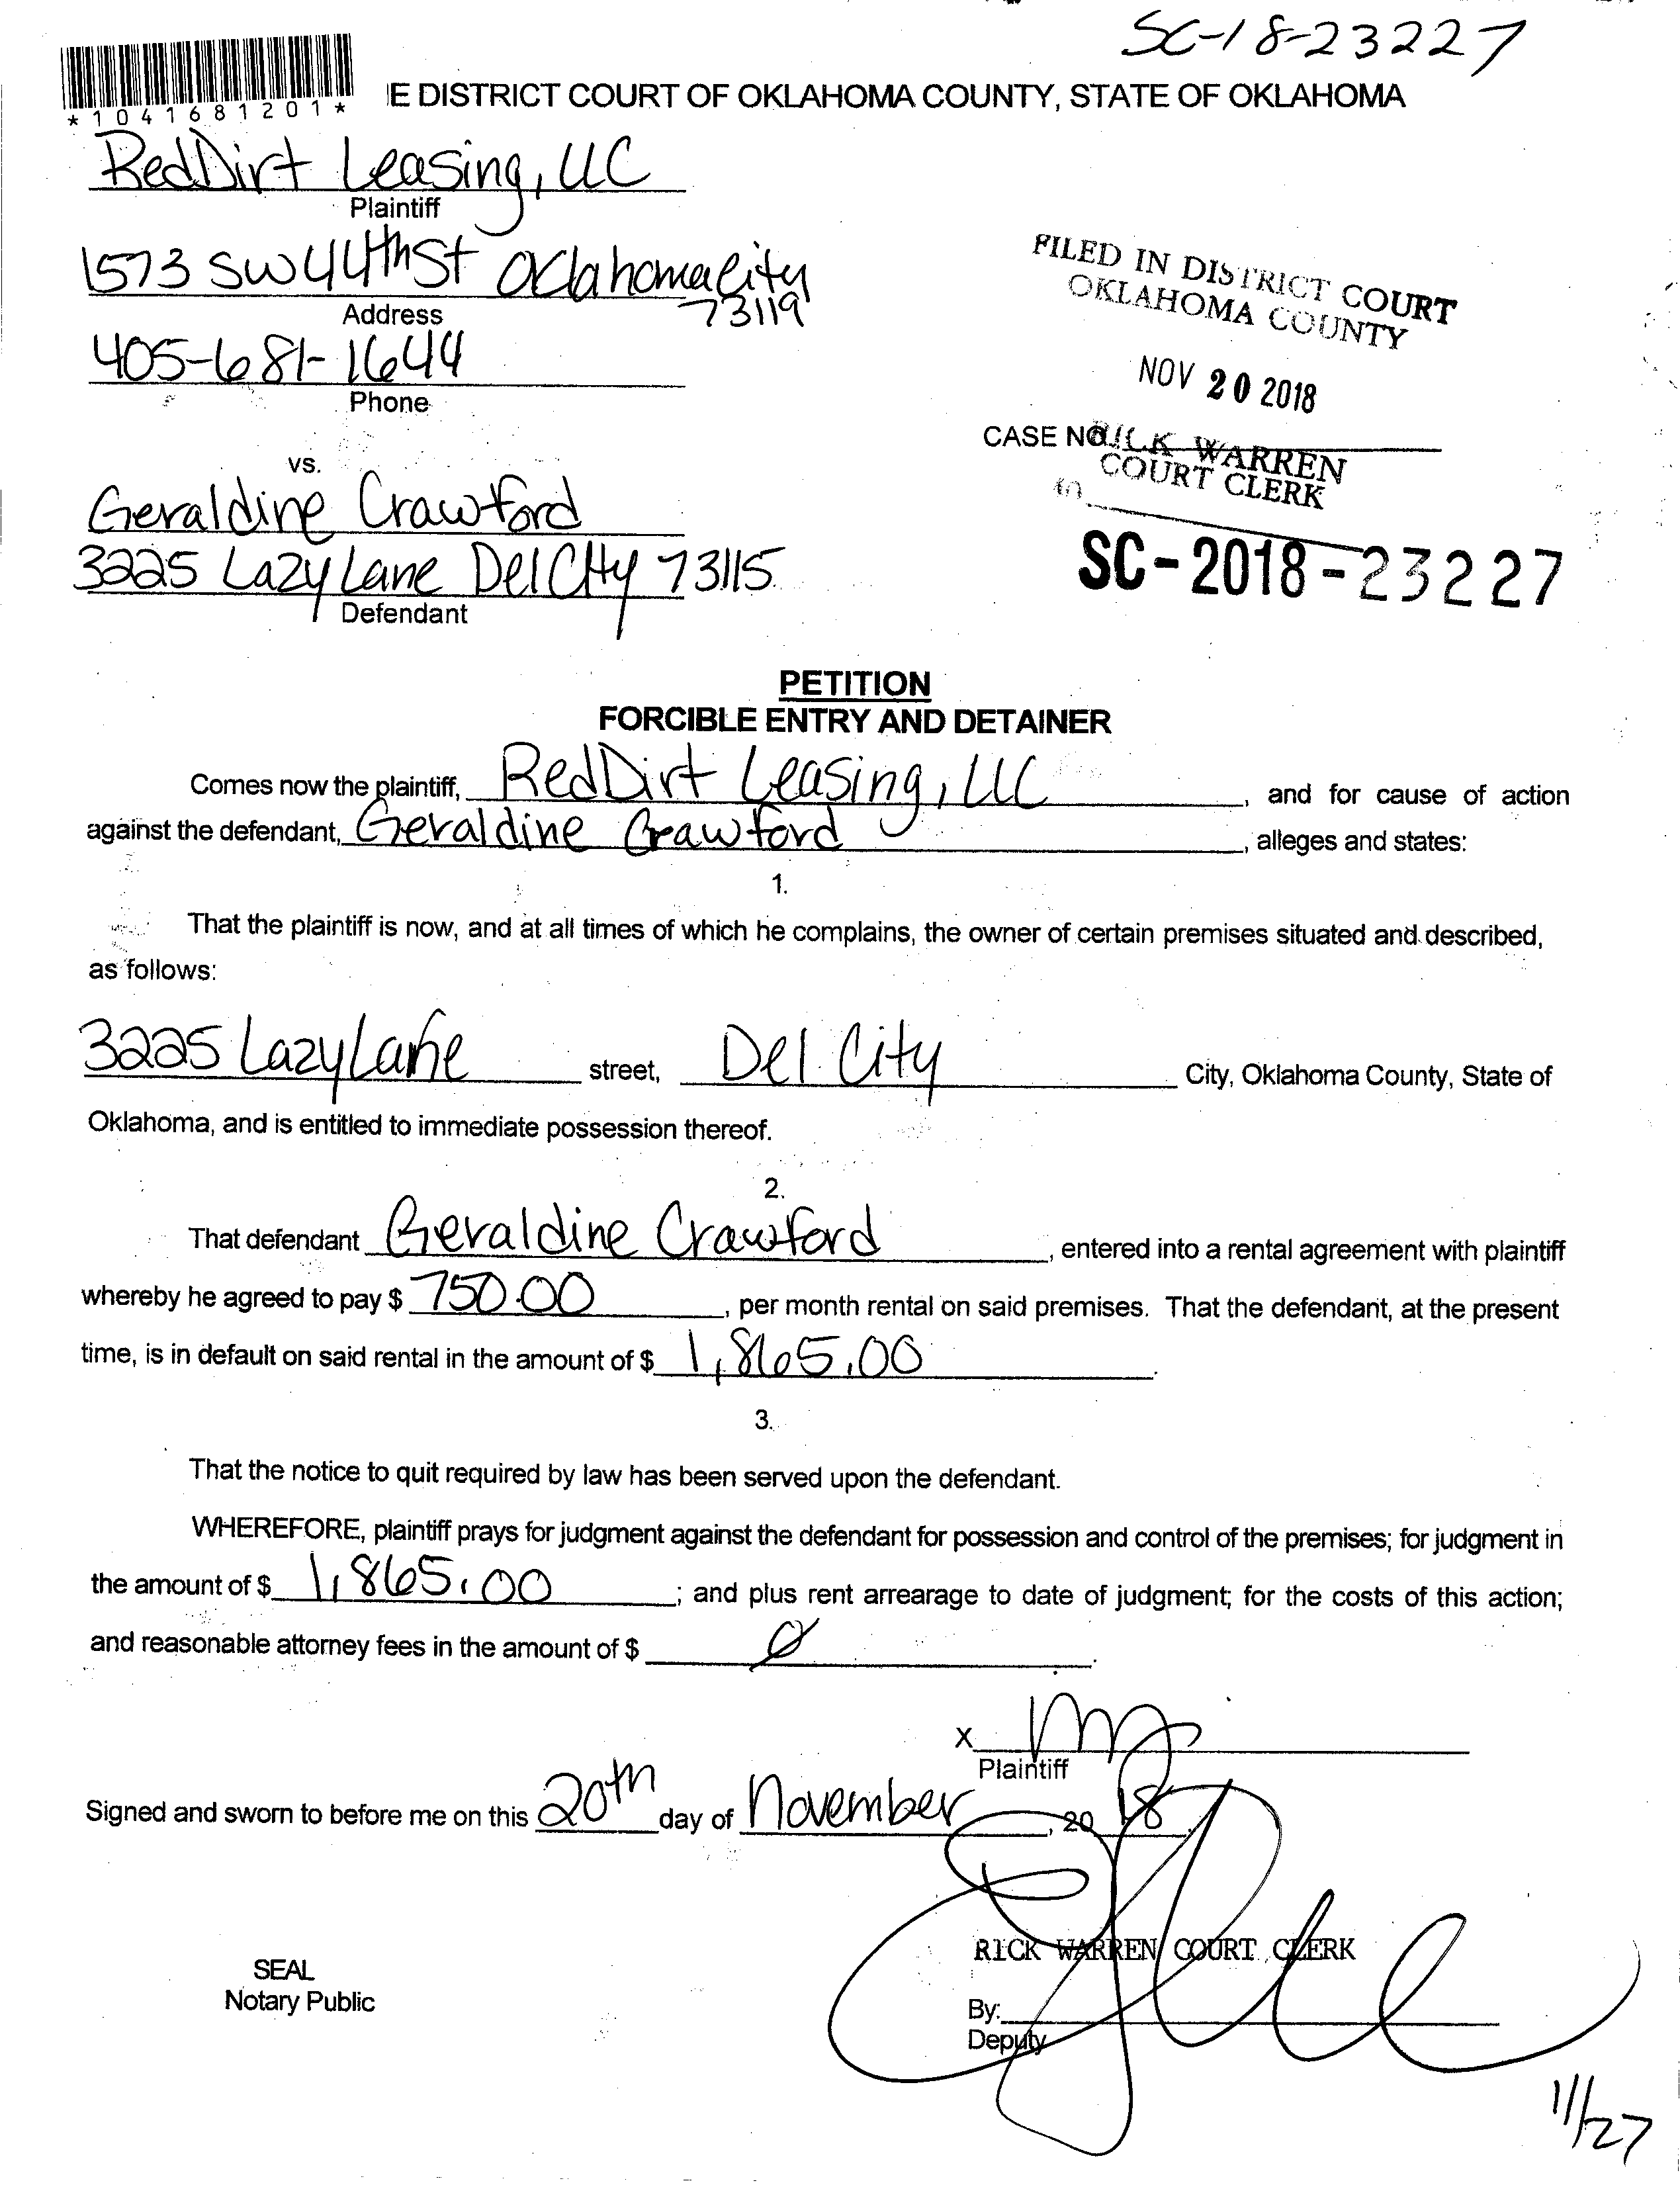 SC-18-23227
*1041681201*
E DISTRICT COURT OF OKLAHOMA COUNTY, STATE OF OKLAHOMA
RedDirt Leasing, LLC
Plaintiff
1573 SW 44th St Oklahoma City
73119
Address
405-681-1644
Phone
FILED IN DISTRICT COURT
OKLAHOMA COUNTY
NOV 20 2018
CASE NO.
RICK WARREN
COURT CLERK
vs.
Geraldine Crawford
3225 Lazy Lane Del City 73115
Defendant
SC-2018-23227
PETITION
FORCIBLE ENTRY AND DETAINER
Comes now the plaintiff, RedDirt Leasing, LLC, and for cause of action
against the defendant, Geraldine Crawford, alleges and states:
1.
That the plaintiff is now, and at all times of which he complains, the owner of certain premises situated and described,
as follows:
3225 Lazy Lane street, Del City City, Oklahoma County, State of
Oklahoma, and is entitled to immediate possession thereof.
2.
That defendant Geraldine Crawford, entered into a rental agreement with plaintiff
whereby he agreed to pay $ 750.00, per month rental on said premises. That the defendant, at the present
time, is in default on said rental in the amount of $ 1,865.00.
3.
That the notice to quit required by law has been served upon the defendant.
WHEREFORE, plaintiff prays for judgment against the defendant for possession and control of the premises; for judgment in
the amount of $ 1,865.00; and plus rent arrearage to date of judgment; for the costs of this action;
and reasonable attorney fees in the amount of $ Ø.
X
Plaintiff
Signed and sworn to before me on this 20th day of November, 2018.
RICK WARREN COURT CLERK
SEAL
Notary Public
By:
Deputy
11/27